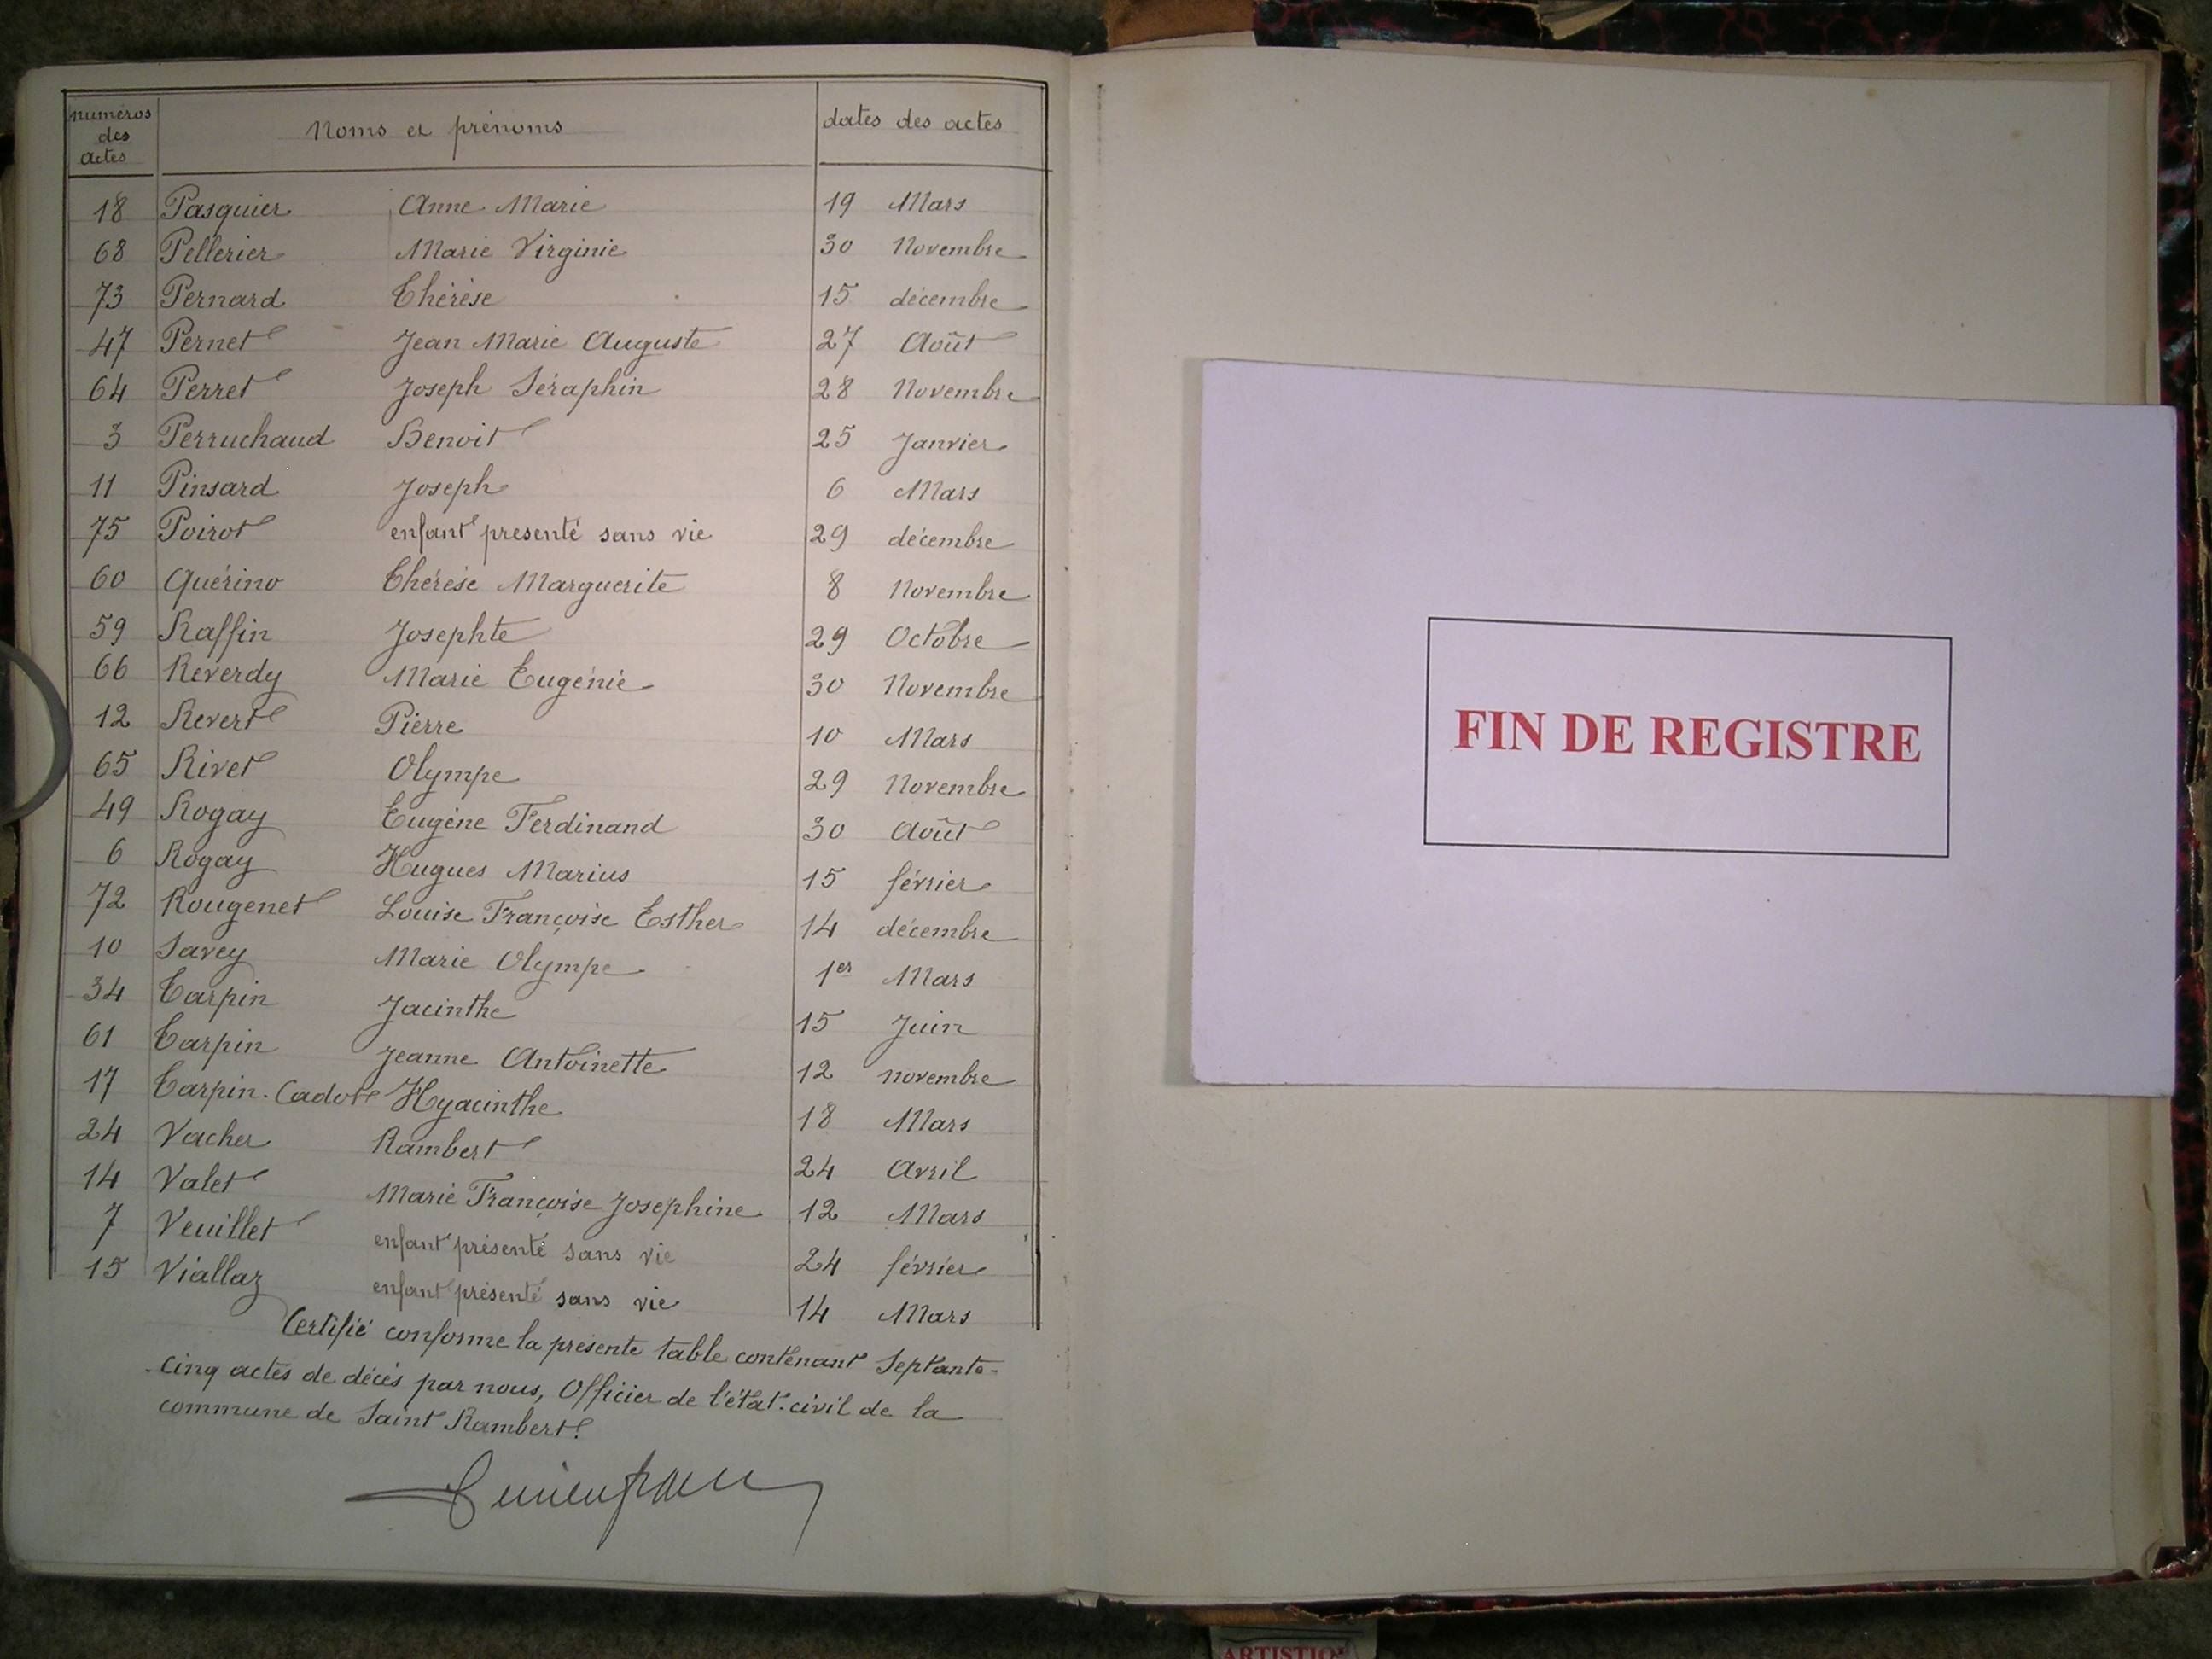 numéros des actes Noms et prénoms dates des actes
18 Pasquier Anne Marie 19 Mars
68 Pellerier Marie Virginie 30 Novembre
73 Pernard Thérèse 15 décembre
47 Pernet Jean Marie Auguste 27 Août
64 Perret Joseph Séraphin 28 Novembre
3 Perruchaud Benoit 25 Janvier
11 Pinsard Joseph 6 Mars
75 Poirot enfant présenté sans vie 29 décembre
60 Quérino Thérèse Marguerite 8 Novembre
59 Raffin Josephte 29 Octobre
66 Reverdy Marie Eugénie 30 Novembre
12 Revert Pierre 10 Mars
65 Rivet Olympe 29 Novembre
49 Rogay Eugène Ferdinand 30 Août
6 Rogay Hugues Marius 15 février
72 Rougenet Louise Françoise Esther 14 décembre
10 Savey Marie Olympe 1er Mars
34 Tarpin Jacinthe 15 Juin
61 Tarpin Jeanne Antoinette 12 novembre
17 Tarpin-Cadot Hyacinthe 18 Mars
24 Vacher Rambert 24 Avril
14 Valet Marie Françoise Josephine 12 Mars
7 Veuillet enfant présenté sans vie 24 février
15 Viallaz enfant présenté sans vie 14 Mars
Certifié conforme la présente table contenant Septante-
cinq actes de décès par nous, Officier de l'état-civil de la
commune de Saint Rambert.
FIN DE REGISTRE